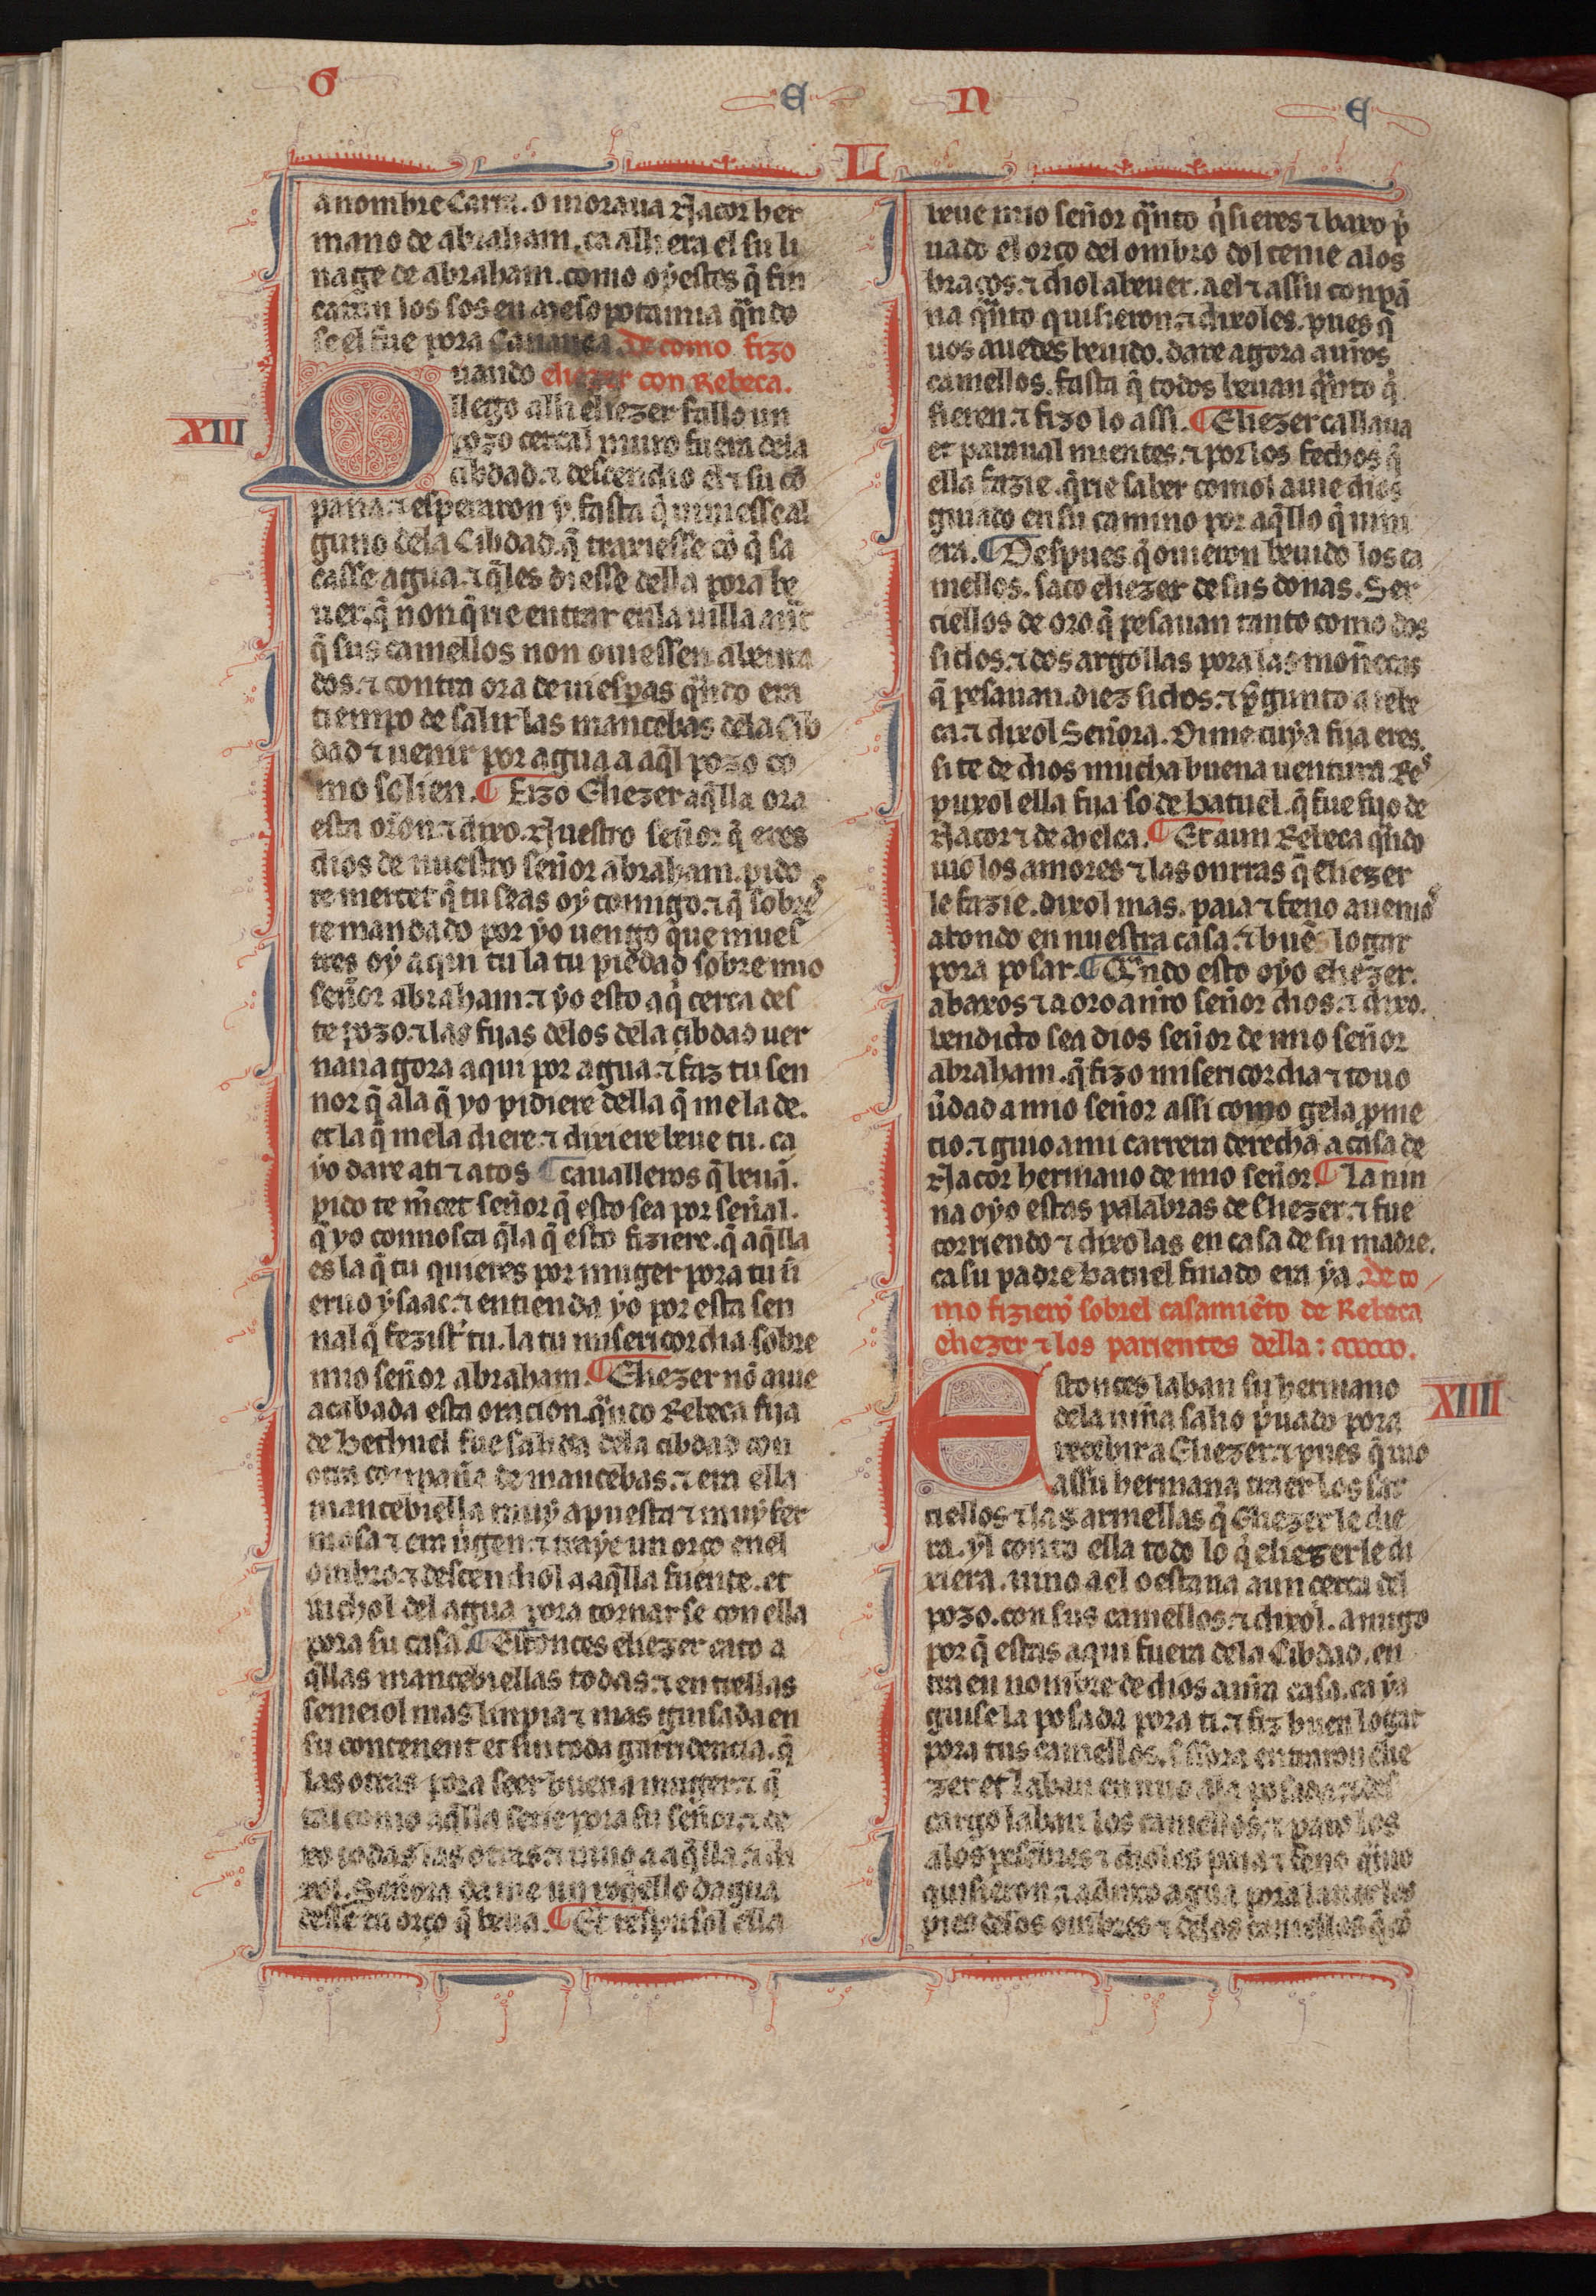 G E N E
L
a nombre Carra. o moraua Nacor her
mano de abraham. ca alli era el su li
nage de abraham. como oyestes q̃ fin
caran los sos en mesopotamia qñdo
se el fue pora Cananea. De como fizo
uando eliezer con Rebeca.
XIII
Q
llego alli eliezer fallo un
pozo cercal muro fuera dela
cibdad. ⁊ descendio el ⁊ su cõ
paña. ⁊ esperaron y. fasta q̃ uiniesse al
guno dela Cibdad. q̃ traxiesse cõ q̃ sa
casse agua. ⁊ q̃ les diesse della pora be
uer. q̃ non q̃rie entrar enla uilla ante
q̃ sus camellos non ouiessen abeura
dos. ⁊ contra ora de uiesp̃as qñdo era
tiempo de salir las mancebas dela Cib
dad ⁊ uenir por agua a aq̃l pozo co
mo solien. ¶ Fizo Eliezer aq̃lla ora
esta orõn ⁊ dixo. Nuestro señor q̃ eres
dios de nuestro señor abraham. pido
te mercet q̃ tu seas oy comigo. ⁊ q̃ sobre
te mandado por yo uengo que mues
tres oy aqui tu la tu piedad sobre mio
señor abraham. ⁊ yo esto aq̃ cerca des
te pozo. ⁊ las fijas delos dela cibdad uer
nan agora aqui por agua. ⁊ faz tu sen
nor q̃ ala q̃ yo pidiere della q̃ mela de.
et la q̃ mela diere. ⁊ dixiere beue tu. ca
yo dare ati ⁊ atos ¶ caualleros q̃ beuã.
pido te m̃cet señor q̃ esto sea por señal.
q̃ yo connosca q̃la q̃ esto fiziere. q̃ aq̃lla
es la q̃ tu quieres por muger pora tu si
eruo ysaac. ⁊ entienda yo por esta sen
nal q̃ fezist̃ tu. la tu misericordia sobre
mio señor abraham. ¶ Eliezer nõ auie
acabada esta oracion. qñdo Rebeca fija
de Bethuel fue salida dela cibdad con
otra compaña de mancebas. ⁊ era ella
mancebiella muy apuesta ⁊ muy fer
mosa ⁊ era uirgen. ⁊ traye un orço enel
ombro. ⁊ descendiol a aq̃lla fuente. et
inchol del agua pora tornarse con ella
pora su casa. ¶ Estonces eliezer cato a
q̃llas mancebiellas todas. ⁊ entrellas
semeiol mas linpia ⁊ mas guisada en
su contenent et sin toda garridencia. q̃
las otras pora seer buena muger. ⁊ q̃
tal como aq̃lla serie pora su señor. ⁊ de
xo todas las otras. ⁊ uino a aq̃lla. ⁊ di
xol. Señora dame un poq̃llo dagua
desse tu orço q̃ beua. ¶ Et respusol ella
beue mio señor qñto q̃sieres ⁊ baxo p̃
uado el orço del ombro dol tenie alos
braços. ⁊ diol a beuer. a el ⁊ assu conpã
na qñto quisieron. ⁊ dixoles. pues q̃
uos auedes beuido. dare agora auros
camellos. fasta q̃ todos beuan qñto q̃
sieren. ⁊ fizo lo assi. ¶ Eliezer callaua
et paraual mientes. ⁊ por los fechos q̃
ella fazie. q̃rie saber comol auie dios
guiado en su camino por aq̃llo q̃ uini
era. ¶ Despues q̃ ouieron beuido los ca
mellos. saco eliezer de sus donas. Ser
ciellos de oro q̃ pesauan tanto como dos
siclos. ⁊ dos argollas pora las moñecas
q̃ pesauan. diez siclos. ⁊ p̃gunto a rebe
ca. ⁊ dixol Señora. Dime cuya fija eres.
si te de dios mucha buena uentura. Res
puxol ella fija so de Batuel. q̃ fue fijo de
Nacor ⁊ de Melca. ¶ Et aun Rebeca qñdo
uio los amores ⁊ las onrras q̃ Eliezer
le fazie. dixol mas. paia ⁊ feno auemos
abondo en nuestra casa. ⁊ buẽ logar
pora posar. ¶ Qñdo esto oyo eliezer.
abaxos ⁊ aoro a nr̃o señor dios. ⁊ dixo.
bendicto sea dios señor de mio señor
abraham. q̃ fizo misericordia ⁊ touo
ũdad a mio señor assi como gela p̃me
tio. ⁊ guio ami carrera derecha a casa de
Nacor hermano de mio señor. ¶ La nin
na oyo estas palabras de Eliezer. ⁊ fue
corriendo ⁊ dixo las en casa de su madre.
ca su padre Batuel finado era ya. De co
mo fizierõ sobrel casamiẽto de Rebeca
eliezer ⁊ los parientes della:
XIIII
E
stonces laban su hermano
dela niña salio p̃uado pora
recebir a Eliezer. ⁊ pues q̃ uio
assu hermana traer los sar
ciellos ⁊ las armellas q̃ Eliezer le die
ra. yl conto ella todo lo q̃ eliezer le di
xiera. uino a el o estaua aun cerca del
pozo. con sus camellos. ⁊ dixol. amigo
por q̃ estas aqui fuera dela Cibdad. en
tra en nombre de dios a nr̃a casa. ca ya
guise la posada pora ti. ⁊ fiz buen logar
pora tus camellos. Essora entraron elie
zer et laban en uno ala posada. ⁊ des
cargo laban los camellos. ⁊ paro los
alos pesebres ⁊ dioles paia ⁊ feno qñto
quisieron. ⁊ aduxo agua pora lauar los
pies delos ombres ⁊ delos camellos q̃ cõ